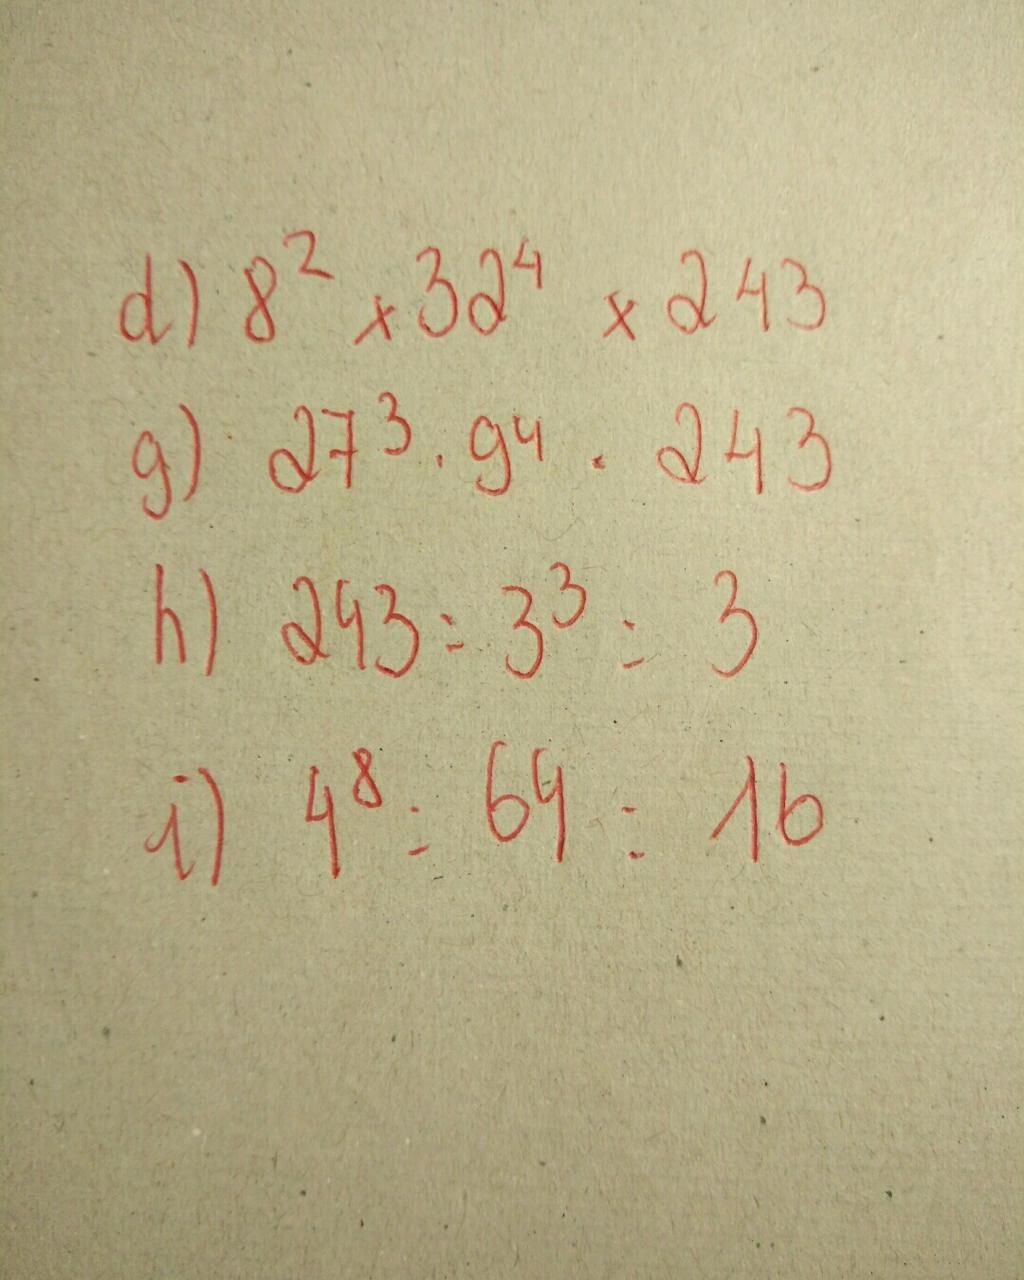 d) 8² x 32⁴ x 243
g) 27³ . 9⁴ . 243
h) 243 : 3³ : 3
i) 4⁸ : 64 : 16